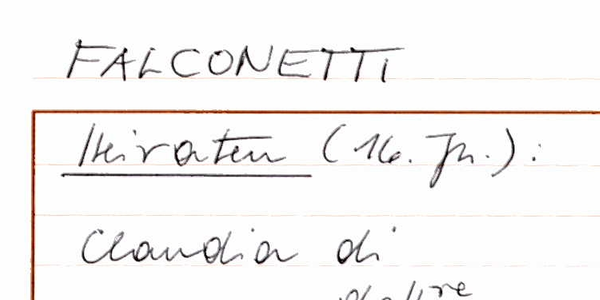 FALCONETTI
Heiraten (16. Jh.):
Claudia di